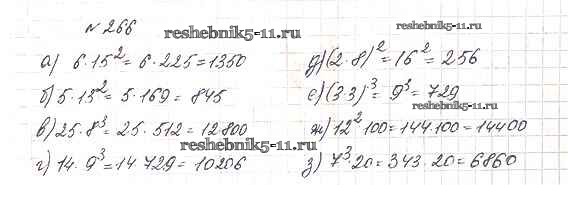 №266
reshebnik5-11.ru
reshebnik5-11.ru
а) 6·15²= 6·225=1350
б) 5·13²= 5·169= 845
в) 25·8³= 25·512= 12800
г) 14·9³=14·729= 10206
reshebnik5-11.ru
д) (2·8)²=16²= 256
е) (3·3)³= 9³= 729
reshebnik5-11.ru
ж) 12²·100=144·100=14400
з) 7³·20=343·20=6860